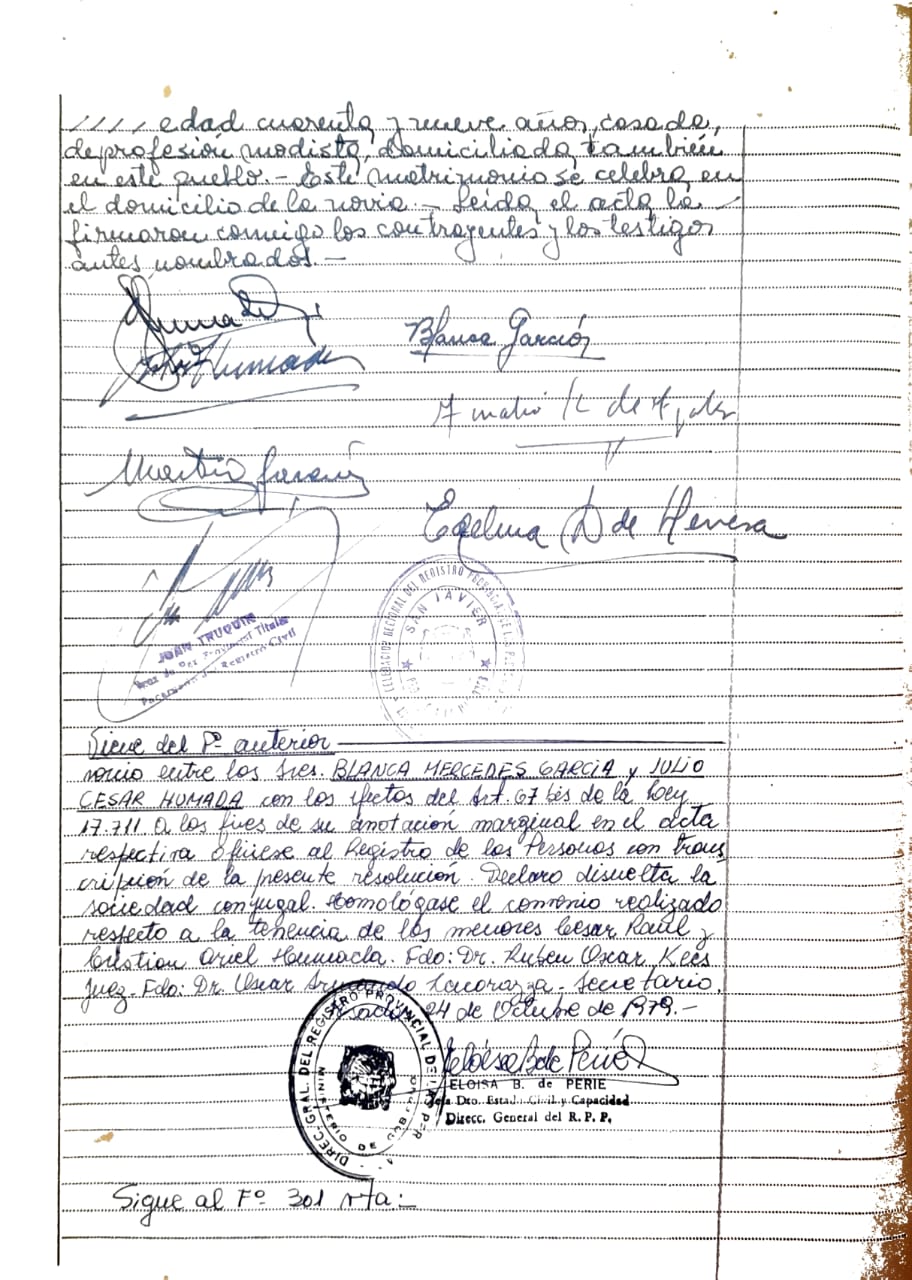 ///// edad cuarenta y nueve años, casada,
de profesión modista, domiciliada también
en este pueblo.- Este matrimonio se celebra en
el domicilio de la novia.- Leida el acta la
firmaron conmigo los contrayentes y los testigos
antes nombrados.-
Blanca García
Humada
Martin García
de Herrera
JUAN TRUQUIN
Juez de Paz Titular
Registro Civil
DELEGACION REGIONAL DEL REGISTRO PROVINCIAL DE LAS PERSONAS
SAN JAVIER
Viene del Fº anterior
monio entre los Sres. BLANCA MERCEDES GARCIA y JULIO
CESAR HUMADA con los efectos del Art. 67 bis de la Ley
17.711. A los fines de su anotación marginal en el acta
respectiva ofíciese al Registro de las Personas con trans
cripción de la presente resolución. Declaro disuelta la
sociedad conyugal. Homológase el convenio realizado
respecto a la tenencia de los menores Cesar Raúl y
Cristian Ariel Humada. Fdo: Dr. Ruben Oscar Kees
Juez- Fdo: Dr. Oscar Armando - Secretario.
Posadas, 24 de Octubre de 1979.-
Eloisa B de Perié
ELOISA B. de PERIE
Jefa Dto. Estado Civil y Capacidad
Direcc. General del R. P. P.
DIREC. GRAL. DEL REGISTRO PROVINCIAL DE LAS PER
MINISTERIO DE GOBIERNO
Sigue al Fº 301 vta:-